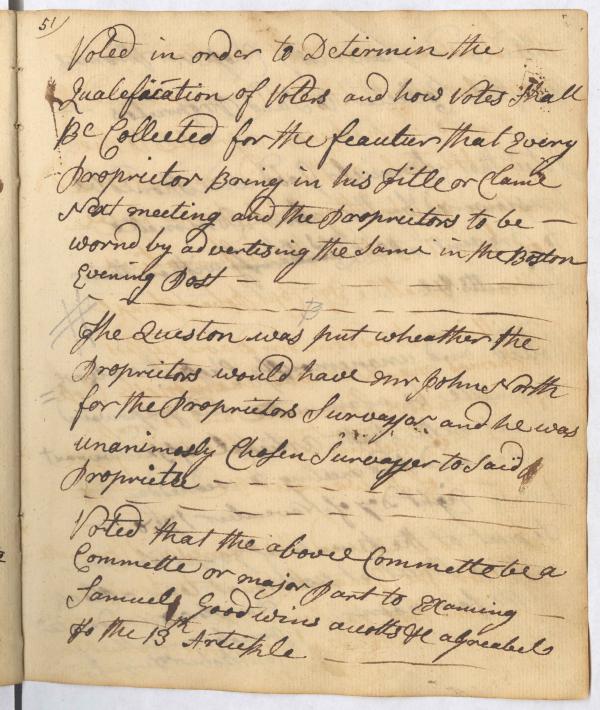 51
Voted in order to Determin the —
Qualefication of Voters and how Votes Shall
Be Collected for the feautier that Every
Proprietor Bring in his Title or Clame
Next meeting and the Proprietors to be —
wornd by advertising the Same in the Boston
Evening Post — — — — — —
The Queston was put wheather the
Proprietors would have mr John North
for the Proprietors Survayor and he was
unanimosly Chosen Survayer to Said
Proprietee — — — — — —
Voted that the above Commette be a
Commette or major Part to Examing —
Samuel Goodwins acotts & agreabels
to the 13th Artickle — — — —